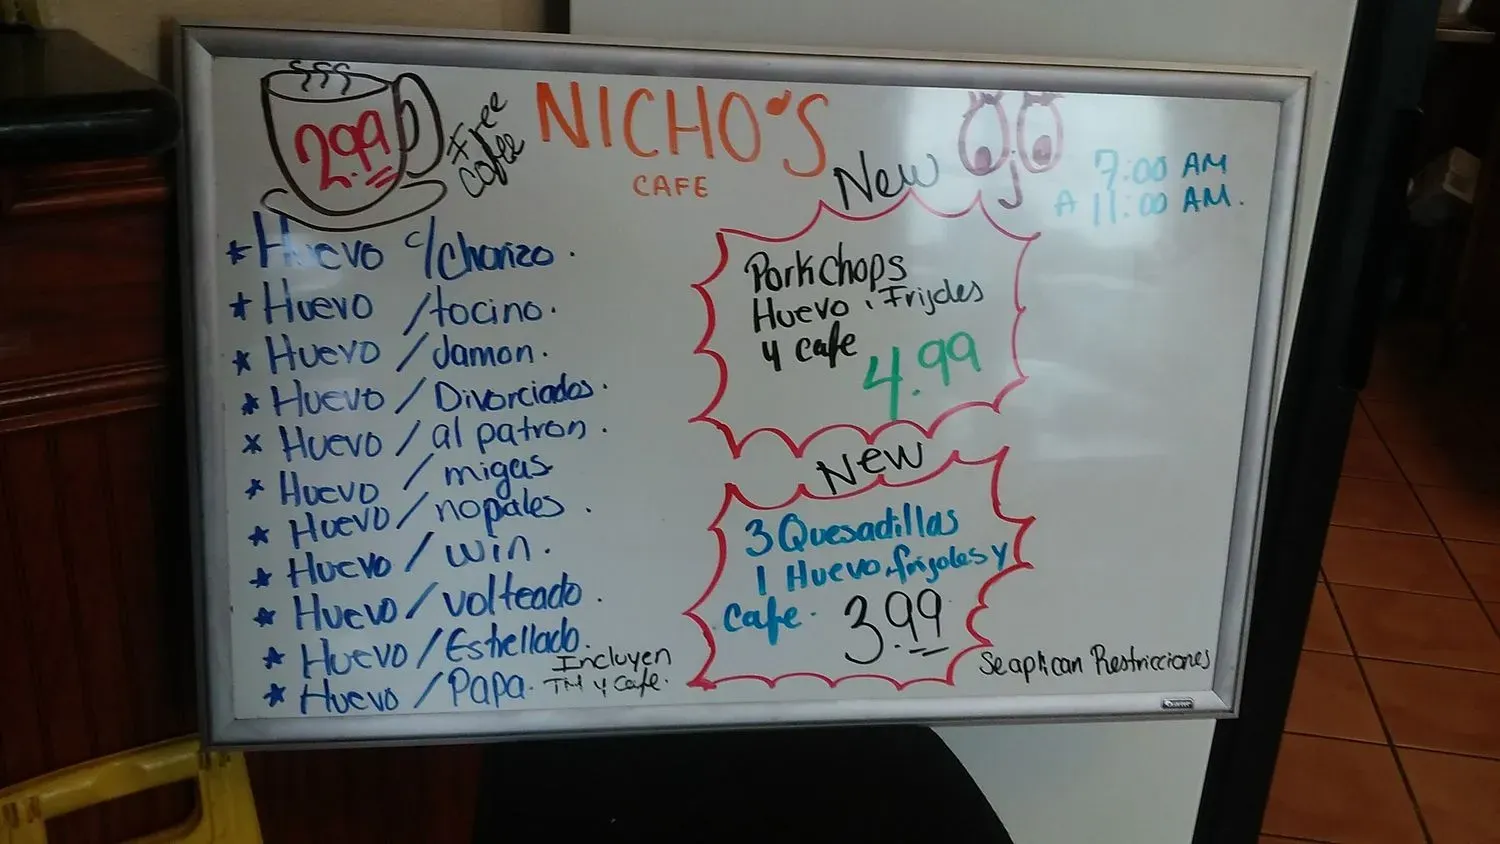 2.99
Free
Coffee
NICHO'S
CAFE
7:00 AM
A 11:00 AM.
* Huevo c/chorizo.
* Huevo /tocino.
* Huevo /Jamon.
* Huevo / Divorciados.
* Huevo / al patron.
* Huevo / migas
* Huevo / nopales.
* Huevo / win.
* Huevo / volteado.
* Huevo / Estrellado.
* Huevo / Papa.
Incluyen
TM y Cafe.
New
Porkchops
Huevo, Frijoles
y cafe
4.99
New
3 Quesadillas
1 Huevo, frijoles y
cafe.
3.99
Se aplican Restricciones